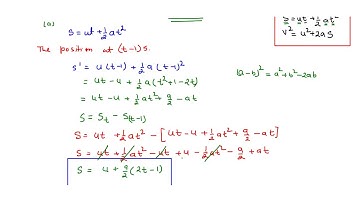 (a)
S = ut + ½at²
S = ut + ½at²
V² = u² + 2aS
The position at (t-1)s.
S' = u(t-1) + ½a(t-1)²
(a-b)² = a² + b² - 2ab
= ut - u + ½a(t² + 1 - 2t)
= ut - u + ½at² + a/2 - at
S = S_t - S_(t-1)
S = ut + ½at² - [ut - u + ½at² + a/2 - at]
S = ut + ½at² - ut + u - ½at² - a/2 + at
S = u + a/2(2t-1)